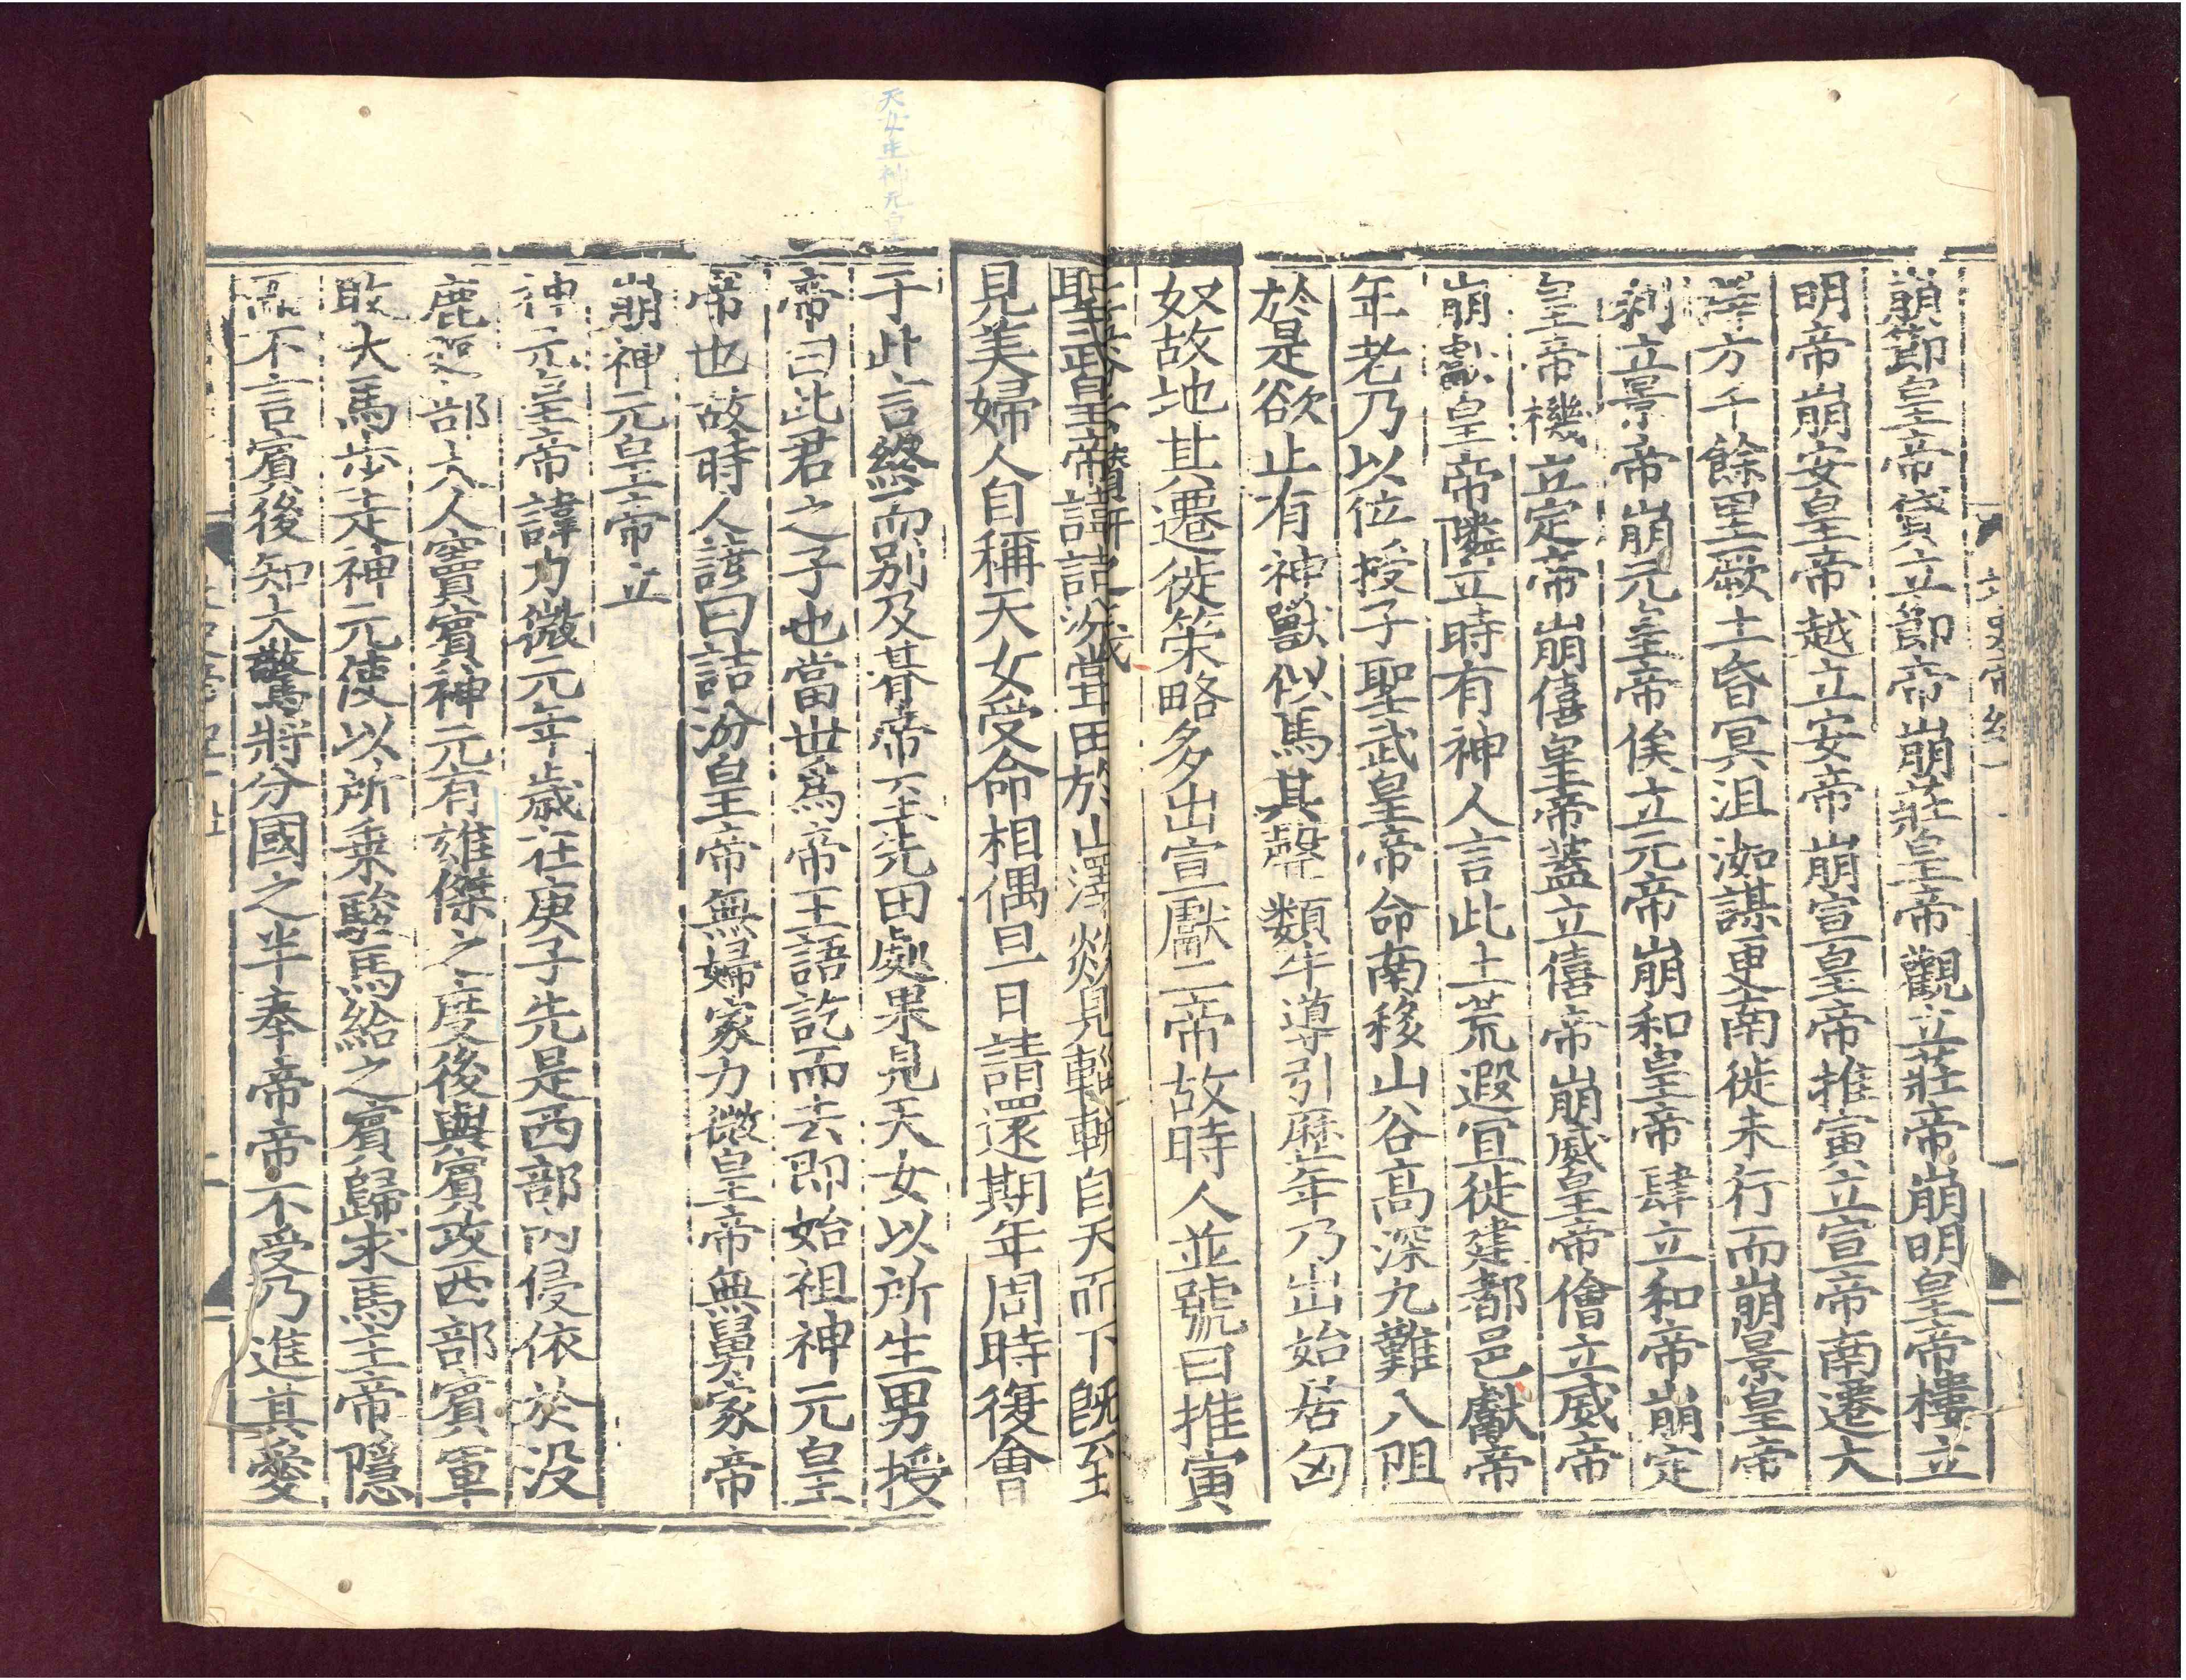 崩節皇帝貸立節帝崩莊皇帝觀立莊帝崩明皇帝樓立
明帝崩安皇帝越立安帝崩宣皇帝推寅立宣帝南遷大
澤方千餘里厥土昏冥沮洳謀更南徙未行而崩景皇帝
利立景帝崩元皇帝俟立元帝崩和皇帝肆立和帝崩定
皇帝機立定帝崩僖皇帝蓋立僖帝崩威皇帝儈立威帝
崩獻皇帝隣立時有神人言此土荒遐宜徙建都邑獻帝
年老乃以位授子聖武皇帝命南移山谷高深九難八阻
於是欲止有神獸似馬其聲類牛導引歷年乃出始居匈
奴故地其遷徙策略多出宣獻二帝故時人並號曰推寅
聖武皇帝諱詰汾嘗田於山澤欻見輜軿自天而下旣至
見美婦人自稱天女受命相偶旦日請還期年周時復會
于此言終而別及期帝至先田處果見天女以所生男授
帝曰此君之子也當世爲帝王語訖而去即始祖神元皇
帝也故時人諺曰詰汾皇帝無婦家力微皇帝無舅家帝
崩神元皇帝立
神元皇帝諱力微元年歲在庚子先是西部內侵依於沒
鹿廻部大人竇賓神元有雄傑之度後與賓攻西部賓軍
敗失馬步走神元使以所乘駿馬給之賓歸求馬主帝隱
而不言賓後知大驚將分國之半奉帝帝不受乃進其愛
天女生神元皇